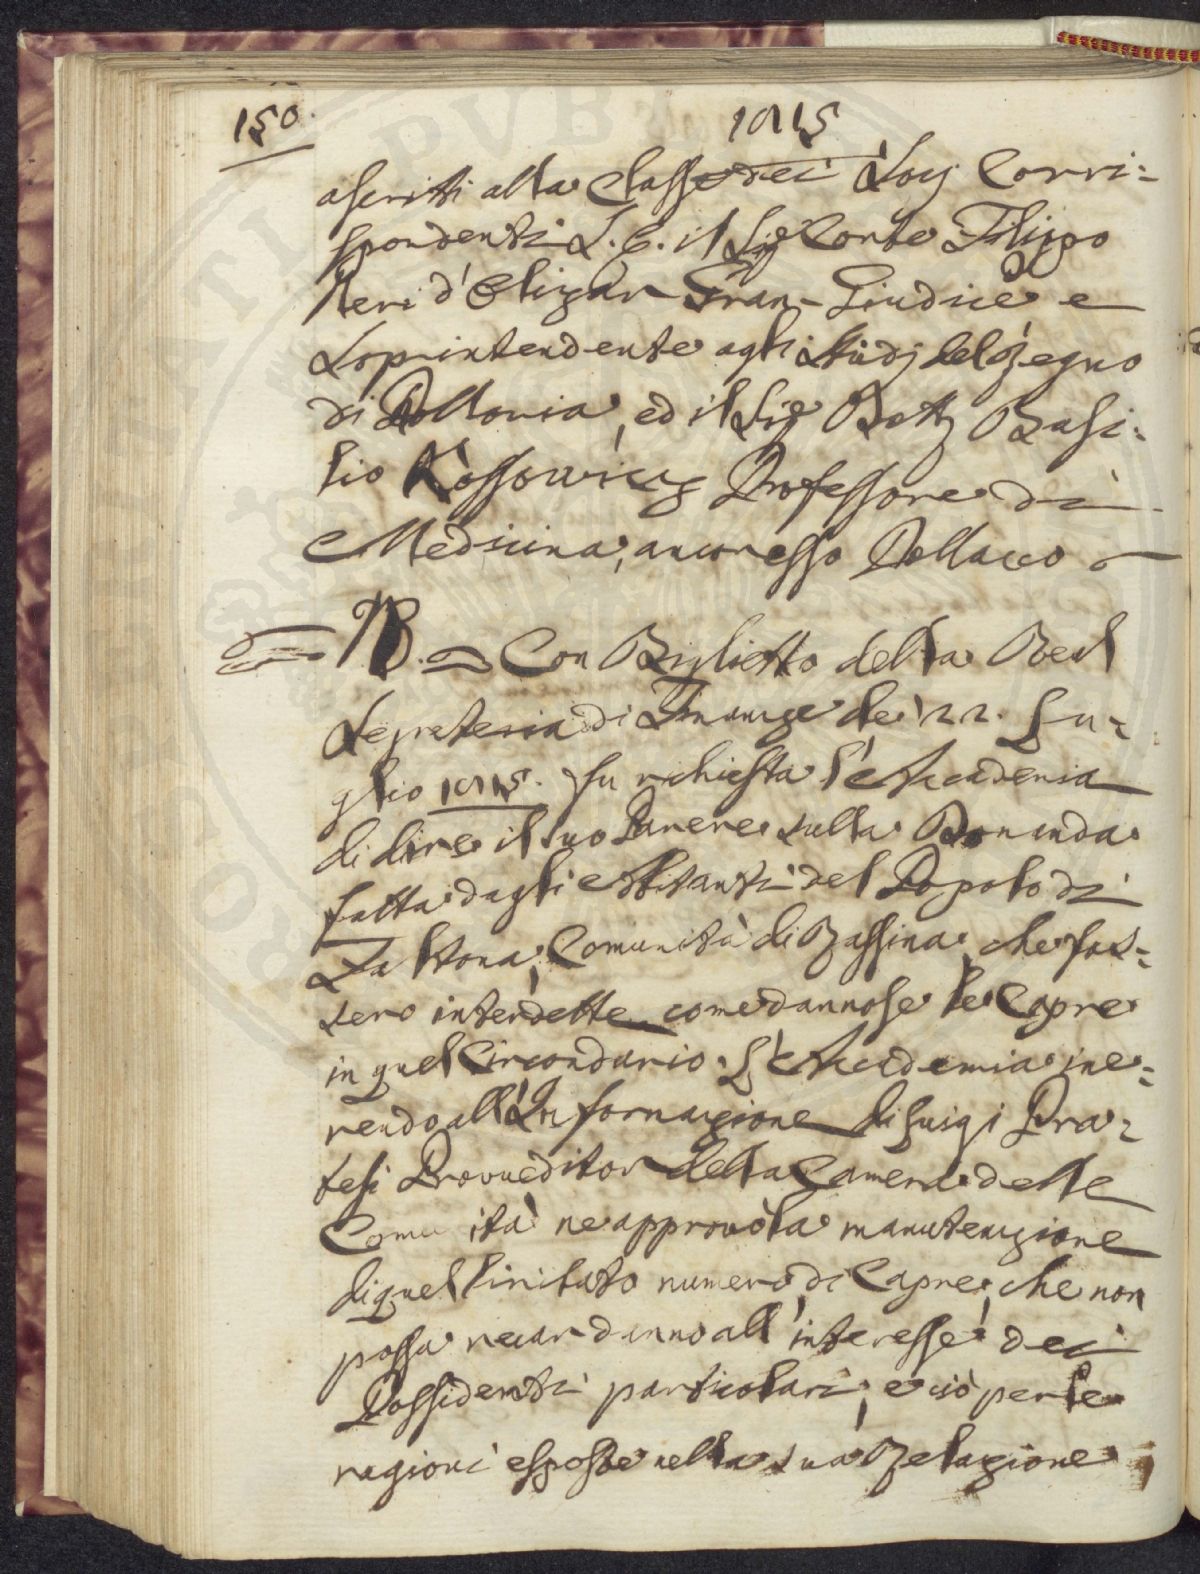 150.
1815
ascritti alla Classe dei Socj Corri=
spondenti S. E. il Sig Conte Filippo
Neri d'Elizar Gran-Giudice e
Soprintendente agli Studj del Regno
di Pollonia, ed il Sig Dott Basi=
lio Kossowicz Professore di
Medicina, ancor esso Pollacco
NB. Con Biglietto della Real
Segreteria di Finanze de' 22. Lu=
glio 1815. fu richiesta l'Accademia
di dire il suo Parere sulla Domanda
fatta dagli Abitanti del Popolo di
La Stona, Comunità di Rassina, che fos=
sero interdette come dannose le Capre
in quel Circondario. L'Accademia ine=
rendo all'Informazione di Luigi Pra=
tesi Provveditor della Camera delle
Comunità ne approvò la manutenzione
di quel limitato numero di Capre, che non
possa recar danno all'interesse dei
Possidenti particolari, e ciò per le
ragioni esposte nella sua Relazione